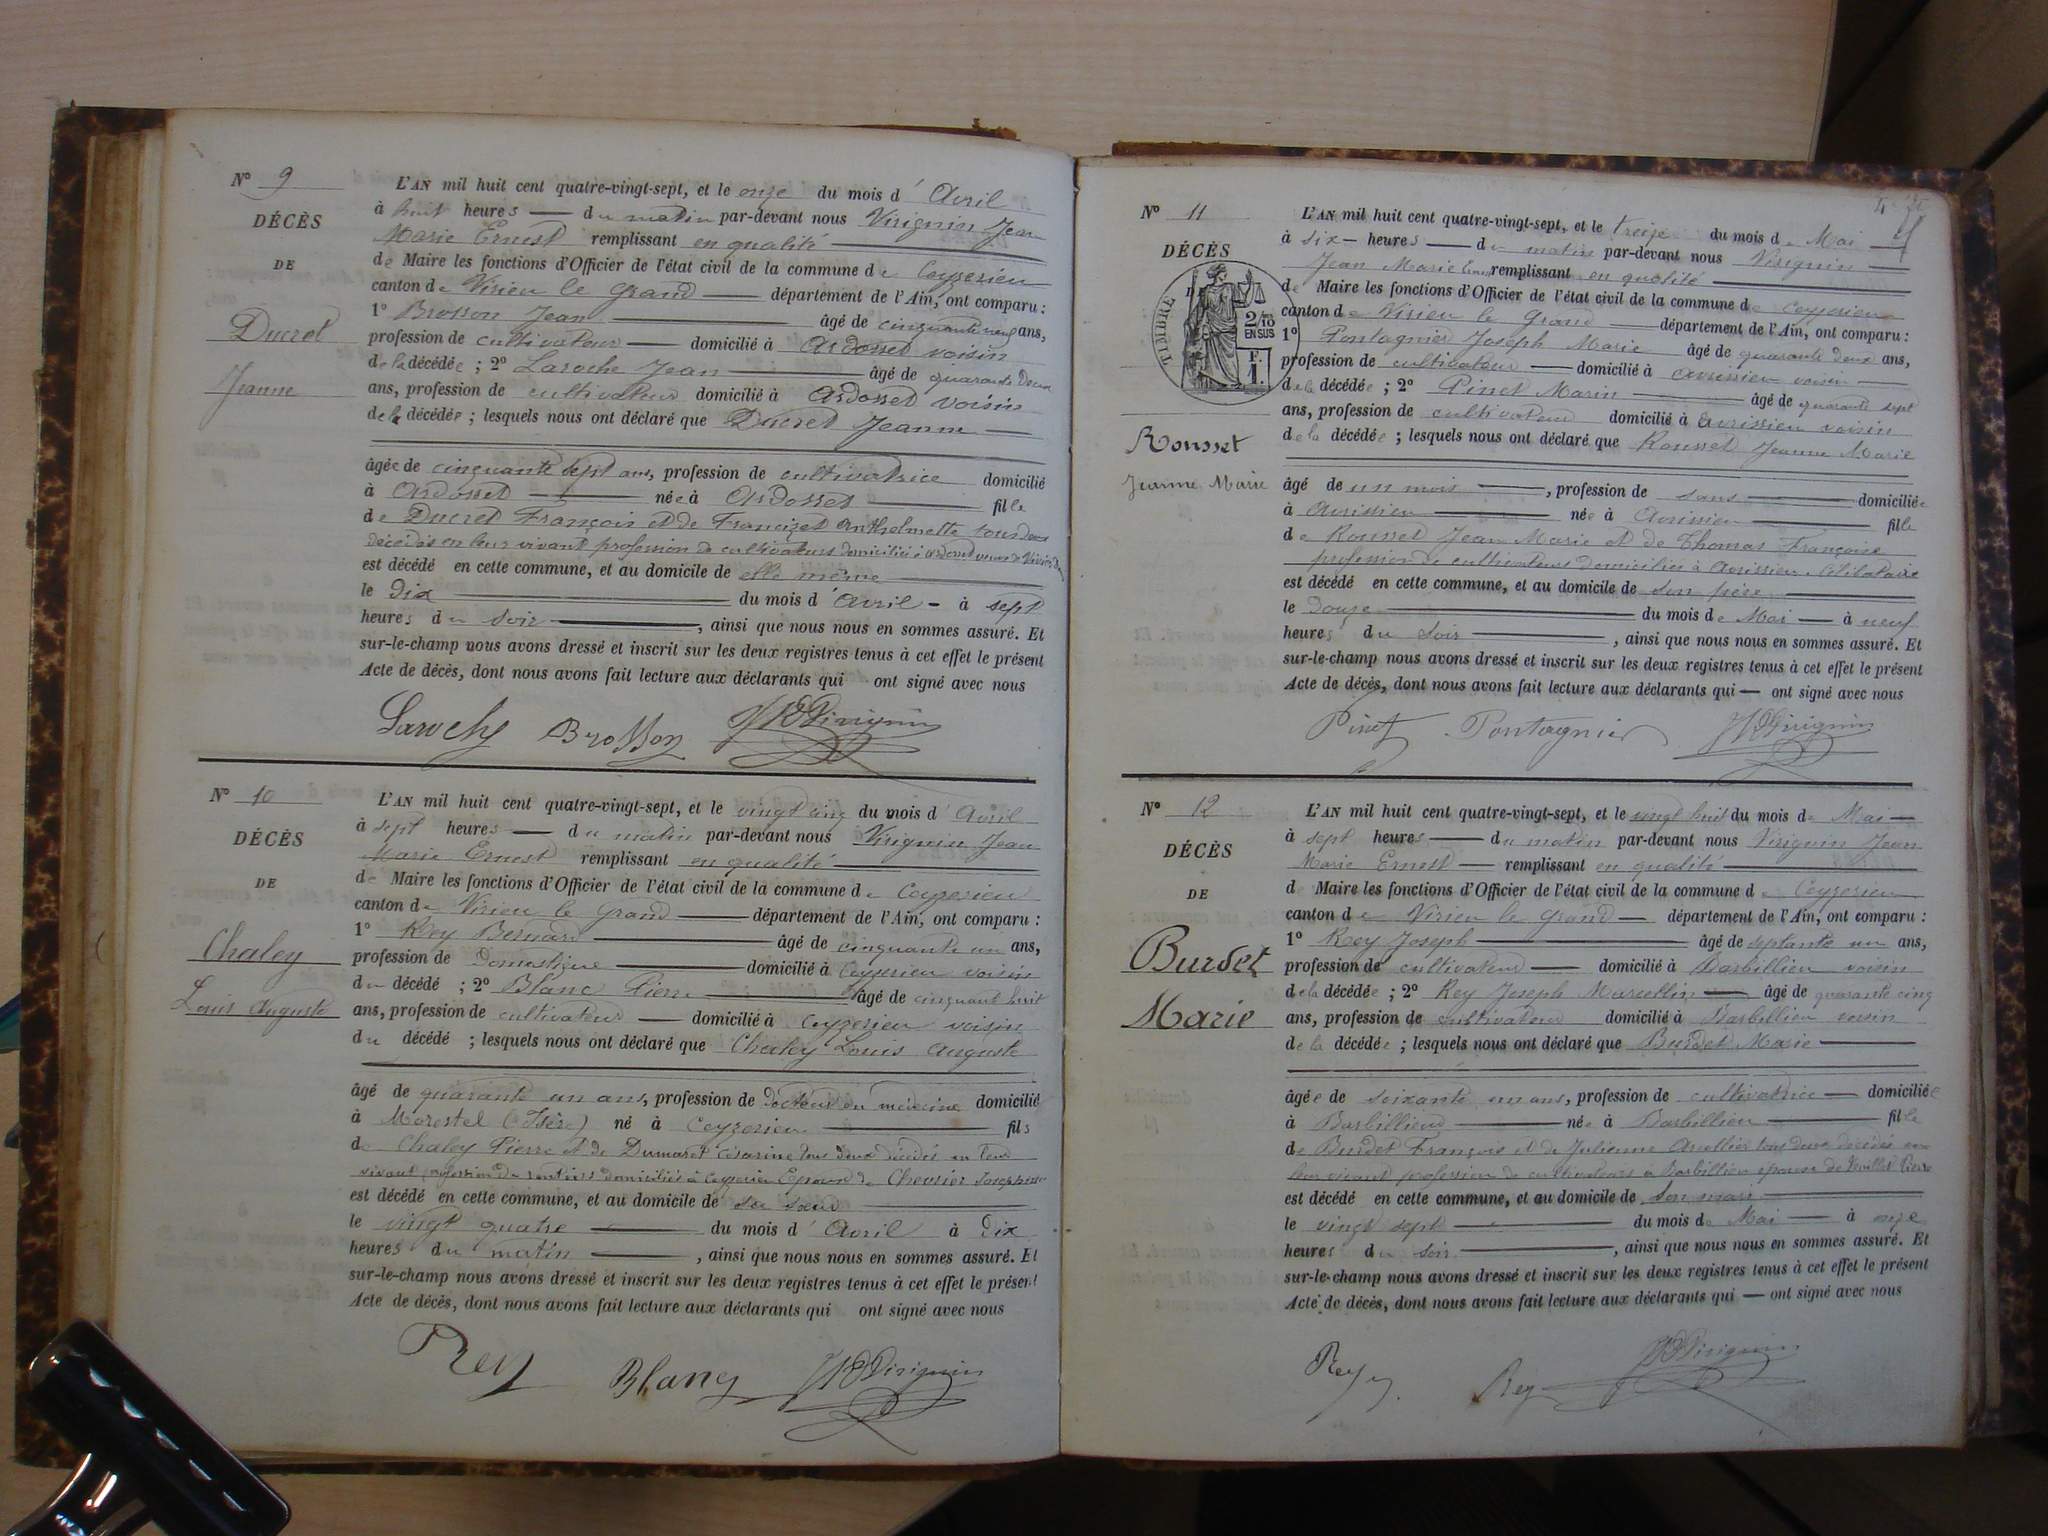 N° 9
DÉCÈS
DE
Ducret
Jeanne
L'AN mil huit cent quatre-vingt-sept, et le onze du mois d'Avril
à huit heures du matin par-devant nous Virignin Jean
Marie Ernest remplissant en qualité
de Maire les fonctions d'Officier de l'état civil de la commune de Ceyzerieu
canton de Virieu le Grand département de l'Ain, ont comparu :
1° Brosson Jean âgé de cinquante neuf ans,
profession de cultivateur domicilié à Ardosset voisin
de la décédée ; 2° Laroche Jean âgé de quarante deux
ans, profession de cultivateur domicilié à Ardosset voisin
de la décédée ; lesquels nous ont déclaré que Ducret Jeanne
âgée de cinquante sept ans, profession de cultivatrice domicilié
à Ardosset née à Ardosset fille
de Ducret François et de Francizet Anthelmette tous deux
décédés en leur vivant profession de cultivateurs domiciliés à Ardosset veuve de
est décédé en cette commune, et au domicile de elle même
le dix du mois d'Avril à sept
heures du soir, ainsi que nous nous en sommes assuré. Et
sur-le-champ nous avons dressé et inscrit sur les deux registres tenus à cet effet le présent
Acte de décès, dont nous avons fait lecture aux déclarants qui ont signé avec nous
Laroche Brosson JMEVirignin
N° 10
DÉCÈS
DE
Chaley
Louis Auguste
L'AN mil huit cent quatre-vingt-sept, et le vingt cinq du mois d'Avril
à sept heures du matin par-devant nous Virignin Jean
Marie Ernest remplissant en qualité
de Maire les fonctions d'Officier de l'état civil de la commune de Ceyzerieu
canton de Virieu le Grand département de l'Ain, ont comparu :
1° Rey Bernard âgé de cinquante un ans,
profession de Domestique domicilié à Ceyzerieu voisin
du décédé ; 2° Blanc Pierre âgé de cinquant huit
ans, profession de cultivateur domicilié à Ceyzerieu voisin
du décédé ; lesquels nous ont déclaré que Chaley Louis Auguste
âgé de quarante un ans, profession de docteur en médecine domicilié
à Morestel (Isère) né à Ceyzerieu fils
de Chaley Pierre et de Dumarest Césarine tous deux décédés en leur
vivant profession de rentiers domiciliés à Ceyzerieu Epoux de Chevrier Joséphine
est décédé en cette commune, et au domicile de sa sœur
le vingt quatre du mois d'Avril à dix
heures du matin, ainsi que nous nous en sommes assuré. Et
sur-le-champ nous avons dressé et inscrit sur les deux registres tenus à cet effet le présent
Acte de décès, dont nous avons fait lecture aux déclarants qui ont signé avec nous
Rey Blanc JMEVirignin
N° 11
DÉCÈS
DE
TIMBRE
2/10
EN SUS
F.
1.
Rousset
Jeanne Marie
L'AN mil huit cent quatre-vingt-sept, et le treize du mois de Mai
à six heures du matin par-devant nous Virignin
Jean Marie Ernest remplissant en qualité
de Maire les fonctions d'Officier de l'état civil de la commune de Ceyzerieu
canton de Virieu le Grand département de l'Ain, ont comparu :
1° Pontagnier Joseph Marie âgé de quarante deux ans,
profession de cultivateur domicilié à Avrissieu voisin
de la décédée ; 2° Pinet Marin âgé de quarante sept
ans, profession de cultivateur domicilié à Avrissieu voisin
de la décédée ; lesquels nous ont déclaré que Rousset Jeanne Marie
âgé de un mois, profession de sans domiciliée
à Avrissieu née à Avrissieu fille
de Rousset Jean Marie et de Thomas Françoise
profession de cultivateurs domiciliés à Avrissieu. Célibataire
est décédé en cette commune, et au domicile de son père
le douze du mois de Mai à neuf
heures du soir, ainsi que nous nous en sommes assuré. Et
sur-le-champ nous avons dressé et inscrit sur les deux registres tenus à cet effet le présent
Acte de décès, dont nous avons fait lecture aux déclarants qui ont signé avec nous
Pinet Pontagnier JMEVirignin
N° 12
DÉCÈS
DE
Burdet
Marie
L'AN mil huit cent quatre-vingt-sept, et le vingt huit du mois de Mai
à sept heures du matin par-devant nous Virignin Jean
Marie Ernest remplissant en qualité
de Maire les fonctions d'Officier de l'état civil de la commune de Ceyzerieu
canton de Virieu le Grand département de l'Ain, ont comparu :
1° Rey Joseph âgé de septante un ans,
profession de cultivateur domicilié à Barbillieu voisin
de la décédée ; 2° Rey Joseph Marcellin âgé de quarante cinq
ans, profession de cultivateur domicilié à Barbillieu voisin
de la décédée ; lesquels nous ont déclaré que Burdet Marie
âgée de soixante un ans, profession de cultivatrice domiciliée
à Barbillieu née à Barbillieu fille
de Burdet François et de Julienne tous deux décédés en
leur vivant profession de cultivateurs à Barbillieu épouse de Pierre
est décédé en cette commune, et au domicile de son mari
le vingt sept du mois de Mai à onze
heures du soir, ainsi que nous nous en sommes assuré. Et
sur-le-champ nous avons dressé et inscrit sur les deux registres tenus à cet effet le présent
Acte de décès, dont nous avons fait lecture aux déclarants qui ont signé avec nous
Rey Rey JMEVirignin